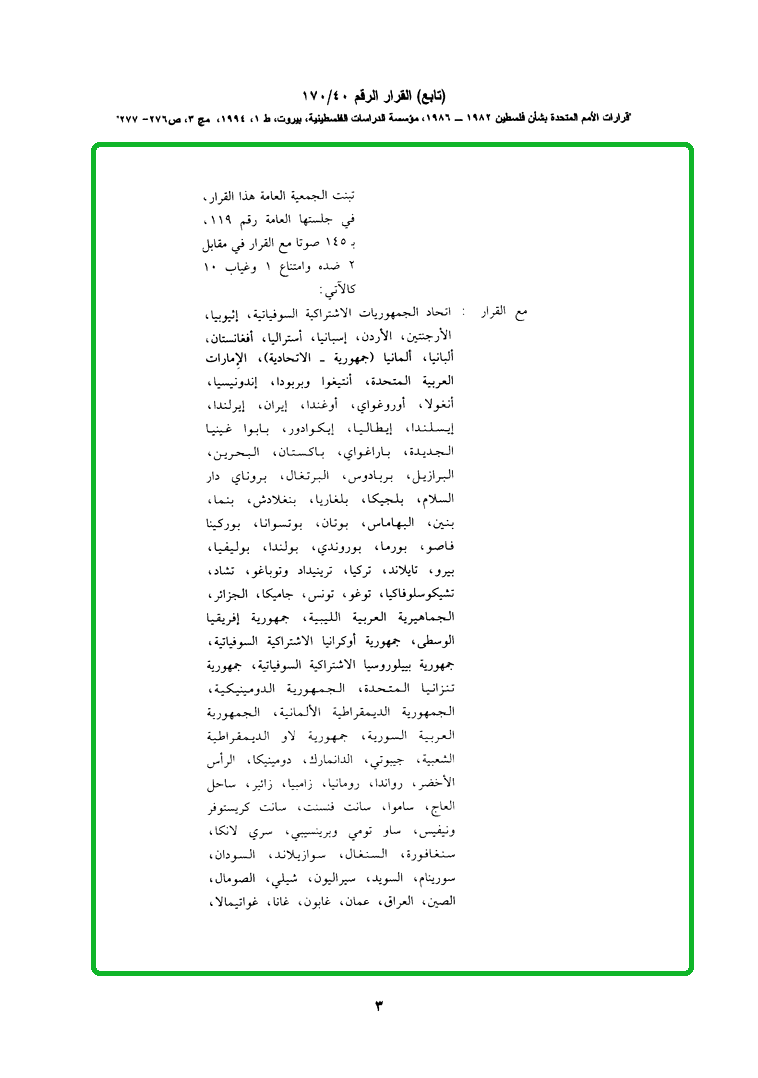 (تابع) القرار الرقم ١٧٠/٤٠
"قرارات الأمم المتحدة بشأن فلسطين ١٩٨٢ – ١٩٨٦، مؤسسة الدراسات الفلسطينية، بيروت، ط ١، ١٩٩٤، مج ٣، ص٢٧٦- ٢٧٧"
تبنت الجمعية العامة هذا القرار،
في جلستها العامة رقم ١١٩،
بـ ١٤٥ صوتا مع القرار في مقابل
٢ ضده وامتناع ١ وغياب ١٠
كالآتي:
مع القرار : اتحاد الجمهوريات الاشتراكية السوفياتية، إثيوبيا،
الأرجنتين، الأردن، إسبانيا، أستراليا، أفغانستان،
ألبانيا، ألمانيا (جمهورية ـ الاتحادية)، الإمارات
العربية المتحدة، أنتيغوا وبربودا، إندونيسيا،
أنغولا، أوروغواي، أوغندا، إيران، إيرلندا،
إيسلندا، إيطاليا، إيكوادور، بابوا غينيا
الجديدة، باراغواي، باكستان، البحرين،
البرازيل، بربادوس، البرتغال، بروناي دار
السلام، بلجيكا، بلغاريا، بنغلادش، بنما،
بنين، البهاماس، بوتان، بوتسوانا، بوركينا
فاصو، بورما، بوروندي، بولندا، بوليفيا،
بيرو، تايلاند، تركيا، ترينيداد وتوباغو، تشاد،
تشيكوسلوفاكيا، توغو، تونس، جاميكا، الجزائر،
الجماهيرية العربية الليبية، جمهورية إفريقيا
الوسطى، جمهورية أوكرانيا الاشتراكية السوفياتية،
جمهورية بييلوروسيا الاشتراكية السوفياتية، جمهورية
تنزانيا المتحدة، الجمهورية الدومينيكية،
الجمهورية الديمقراطية الألمانية، الجمهورية
العربية السورية، جمهورية لاو الديمقراطية
الشعبية، جيبوتي، الدانمارك، دومينيكا، الرأس
الأخضر، رواندا، رومانيا، زامبيا، زائير، ساحل
العاج، ساموا، سانت فنسنت، سانت كريستوفر
ونيفيس، ساو تومي وبرينسيبي، سري لانكا،
سنغافورة، السنغال، سوازيلاند، السودان،
سورينام، السويد، سيراليون، شيلي، الصومال،
الصين، العراق، عمان، غابون، غانا، غواتيمالا،
٣